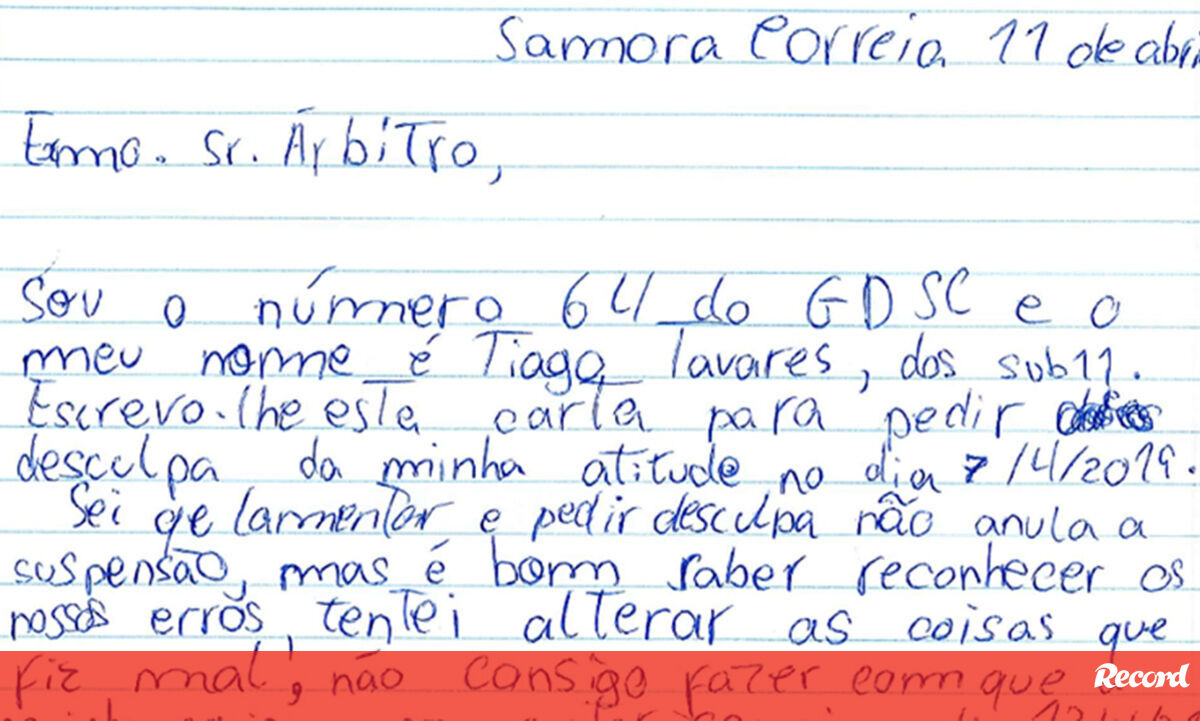 Samora Correia 11 de abri
Exmo. Sr. Árbitro,
Sou o número 64 do GDSC e o
meu nome é Tiago Tavares, dos sub11.
Escrevo-lhe esta carta para pedir
desculpa da minha atitude no dia 7/4/2019.
Sei qe lamentar e pedir desculpa não anula a
suspensão, mas é bom saber reconhecer os
nossos erros, tentei alterar as coisas que
fiz mal, não consigo fazer com que
Record